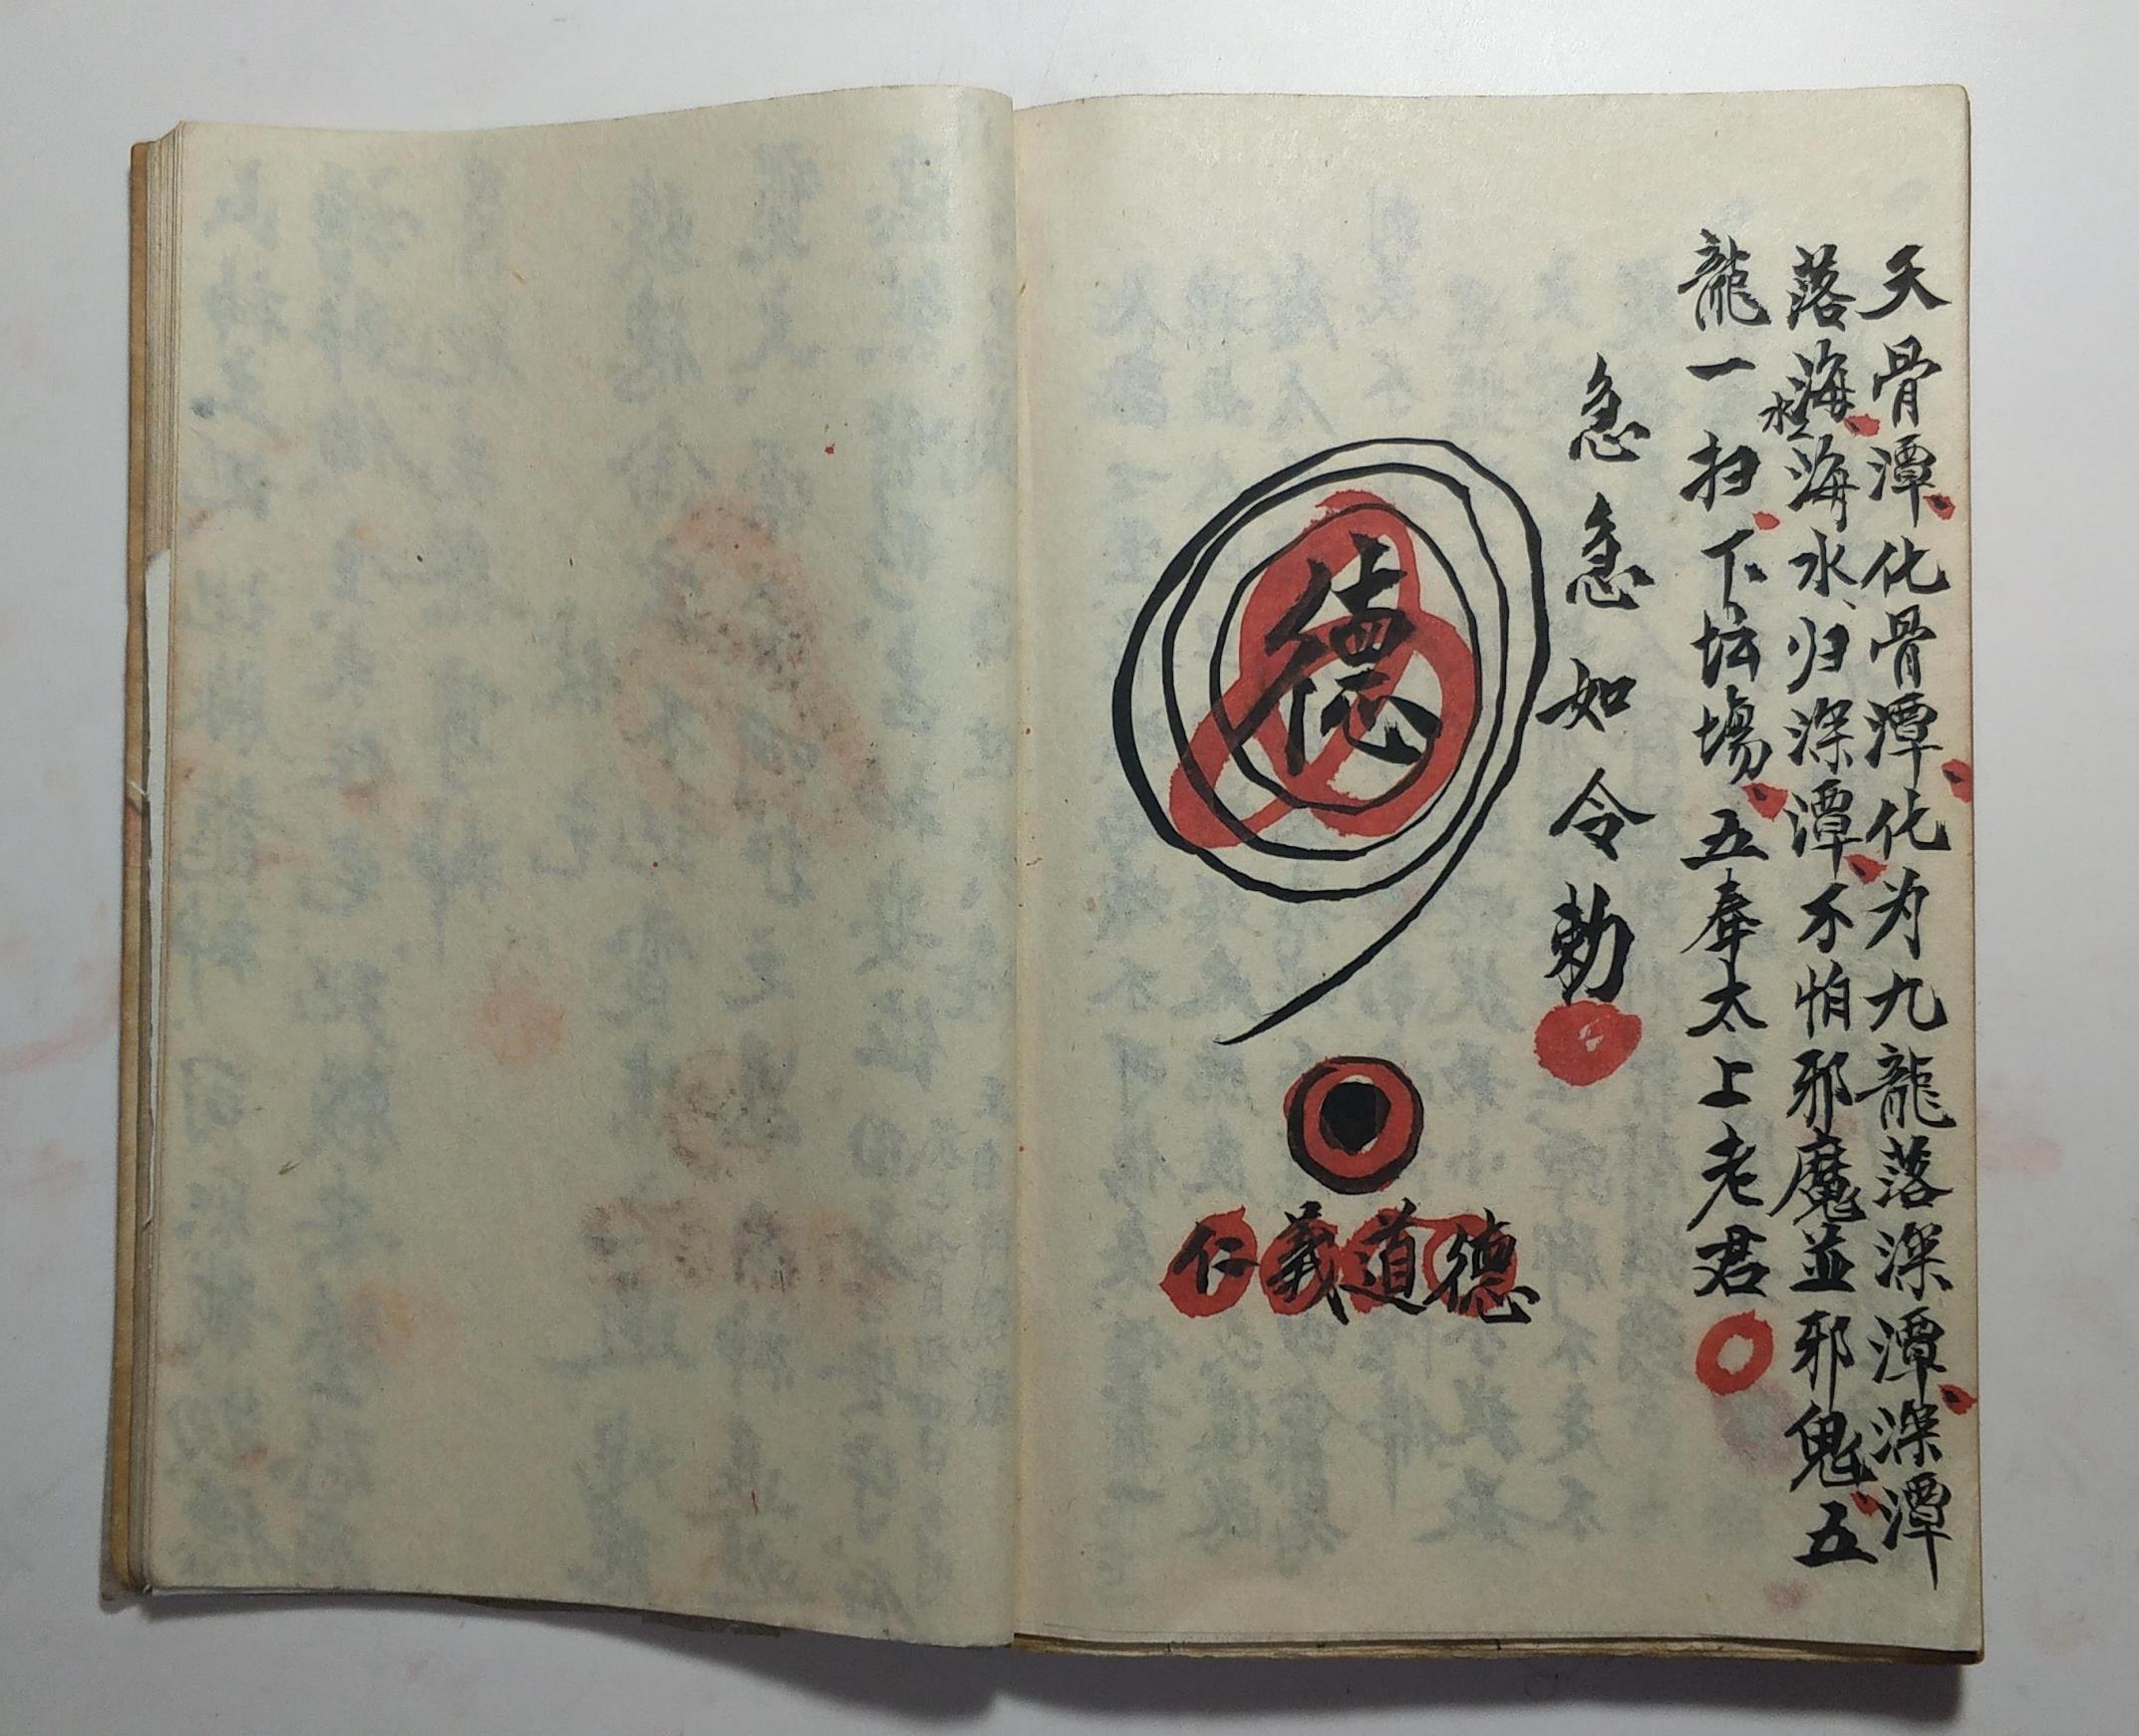 天骨潭、化骨潭、化为九龍落深潭、深潭
落海水、海水、归深潭、不怕邪魔並邪鬼、五
龍一扫下坛場、五奉太上老君
急急如令勅
德
仁義道德